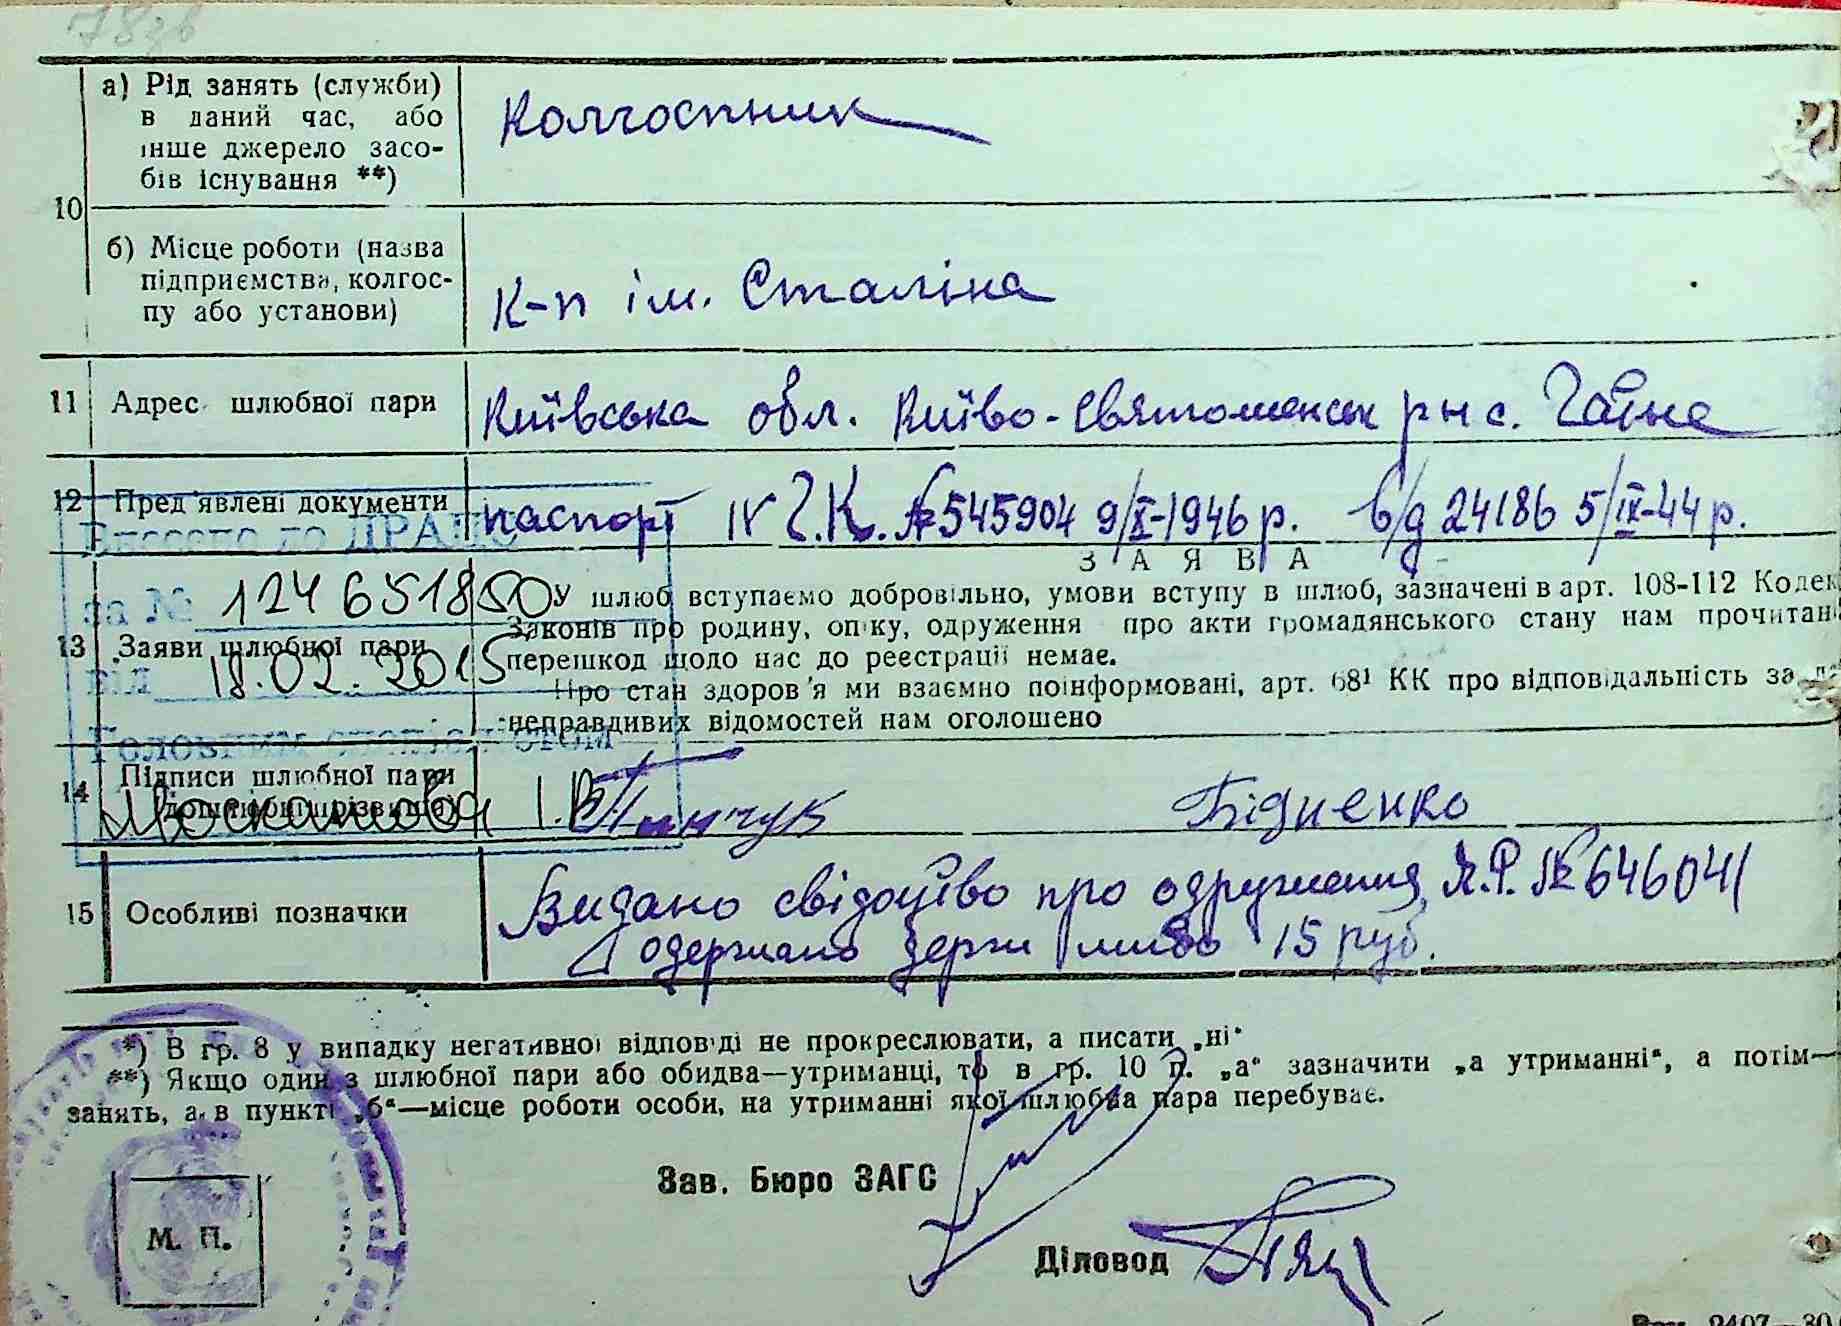 78зв
10
а) Рід занять (служби)
в даний час, або
інше джерело засо-
бів існування **)
Колгоспник
б) Місце роботи (назва
підприємства, колгос-
пу або установи)
к-п ім. Сталіна
11 Адрес шлюбної пари
Київська обл. Києво-Святошинськ р-н с. Гатне
12 Пред'явлені документи
паспорт IV Г.К. № 545904 9/X-1946 р. в/д 24186 5/IX-44 р.
Внесено до ДРАЦС
за № 124651850
від 18.02.2015
Головним спеціалістом
І.В.
13 Заяви шлюбної пари
З А Я В А
У шлюб вступаємо добровільно, умови вступу в шлюб, зазначені в арт. 108-112 Кодек
Законів про родину, опіку, одруження про акти громадянського стану нам прочитані
перешкод щодо нас до реєстрації немає.
Про стан здоров'я ми взаємно поінформовані, арт. 68¹ КК про відповідальність за
неправдивих відомостей нам оголошено
14 Підписи шлюбної пари
(дошлюбні прізвища)
Бідненко
15 Особливі позначки
Видано свідоцтво про одруження Я.Р. № 646041
Одержано держ мито 15 руб.
*) В гр. 8 у випадку негативної відповіді не прокреслювати, а писати „ні“
**) Якщо один з шлюбної пари або обидва—утриманці, то в гр. 10 п. „а“ зазначити „а утриманні“, а потім—
занять, а в пункті „б“—місце роботи особи, на утриманні якої шлюбна пара перебуває.
Зав. Бюро ЗАГС
М. П.
Діловод
2407—30